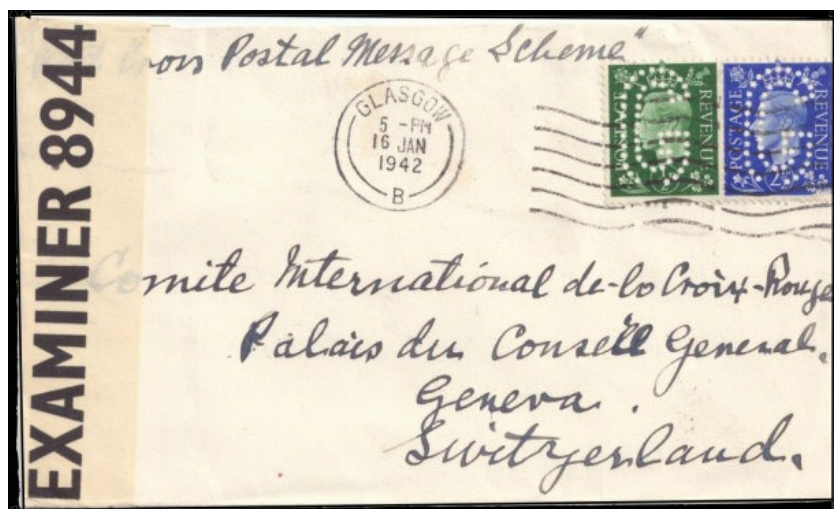 Red Cross Postal Message Scheme"
EXAMINER 8944
GLASGOW
5 - PM
16 JAN
1942
B
POSTAGE REVENUE
POSTAGE REVENUE
Comite International de-la Croix-Rouge
Palais du Conseil General.
Geneva.
Switzerland.